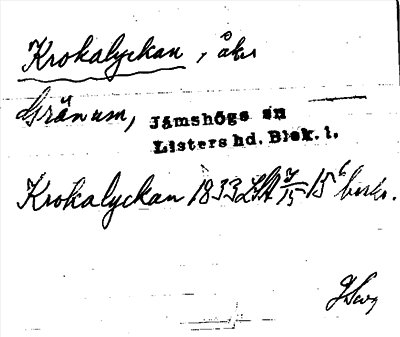 Krokalyckan, åker
Gränum, Jämshögs sn
Listers hd. Blek. l.
Krokalyckan 1833 LSA